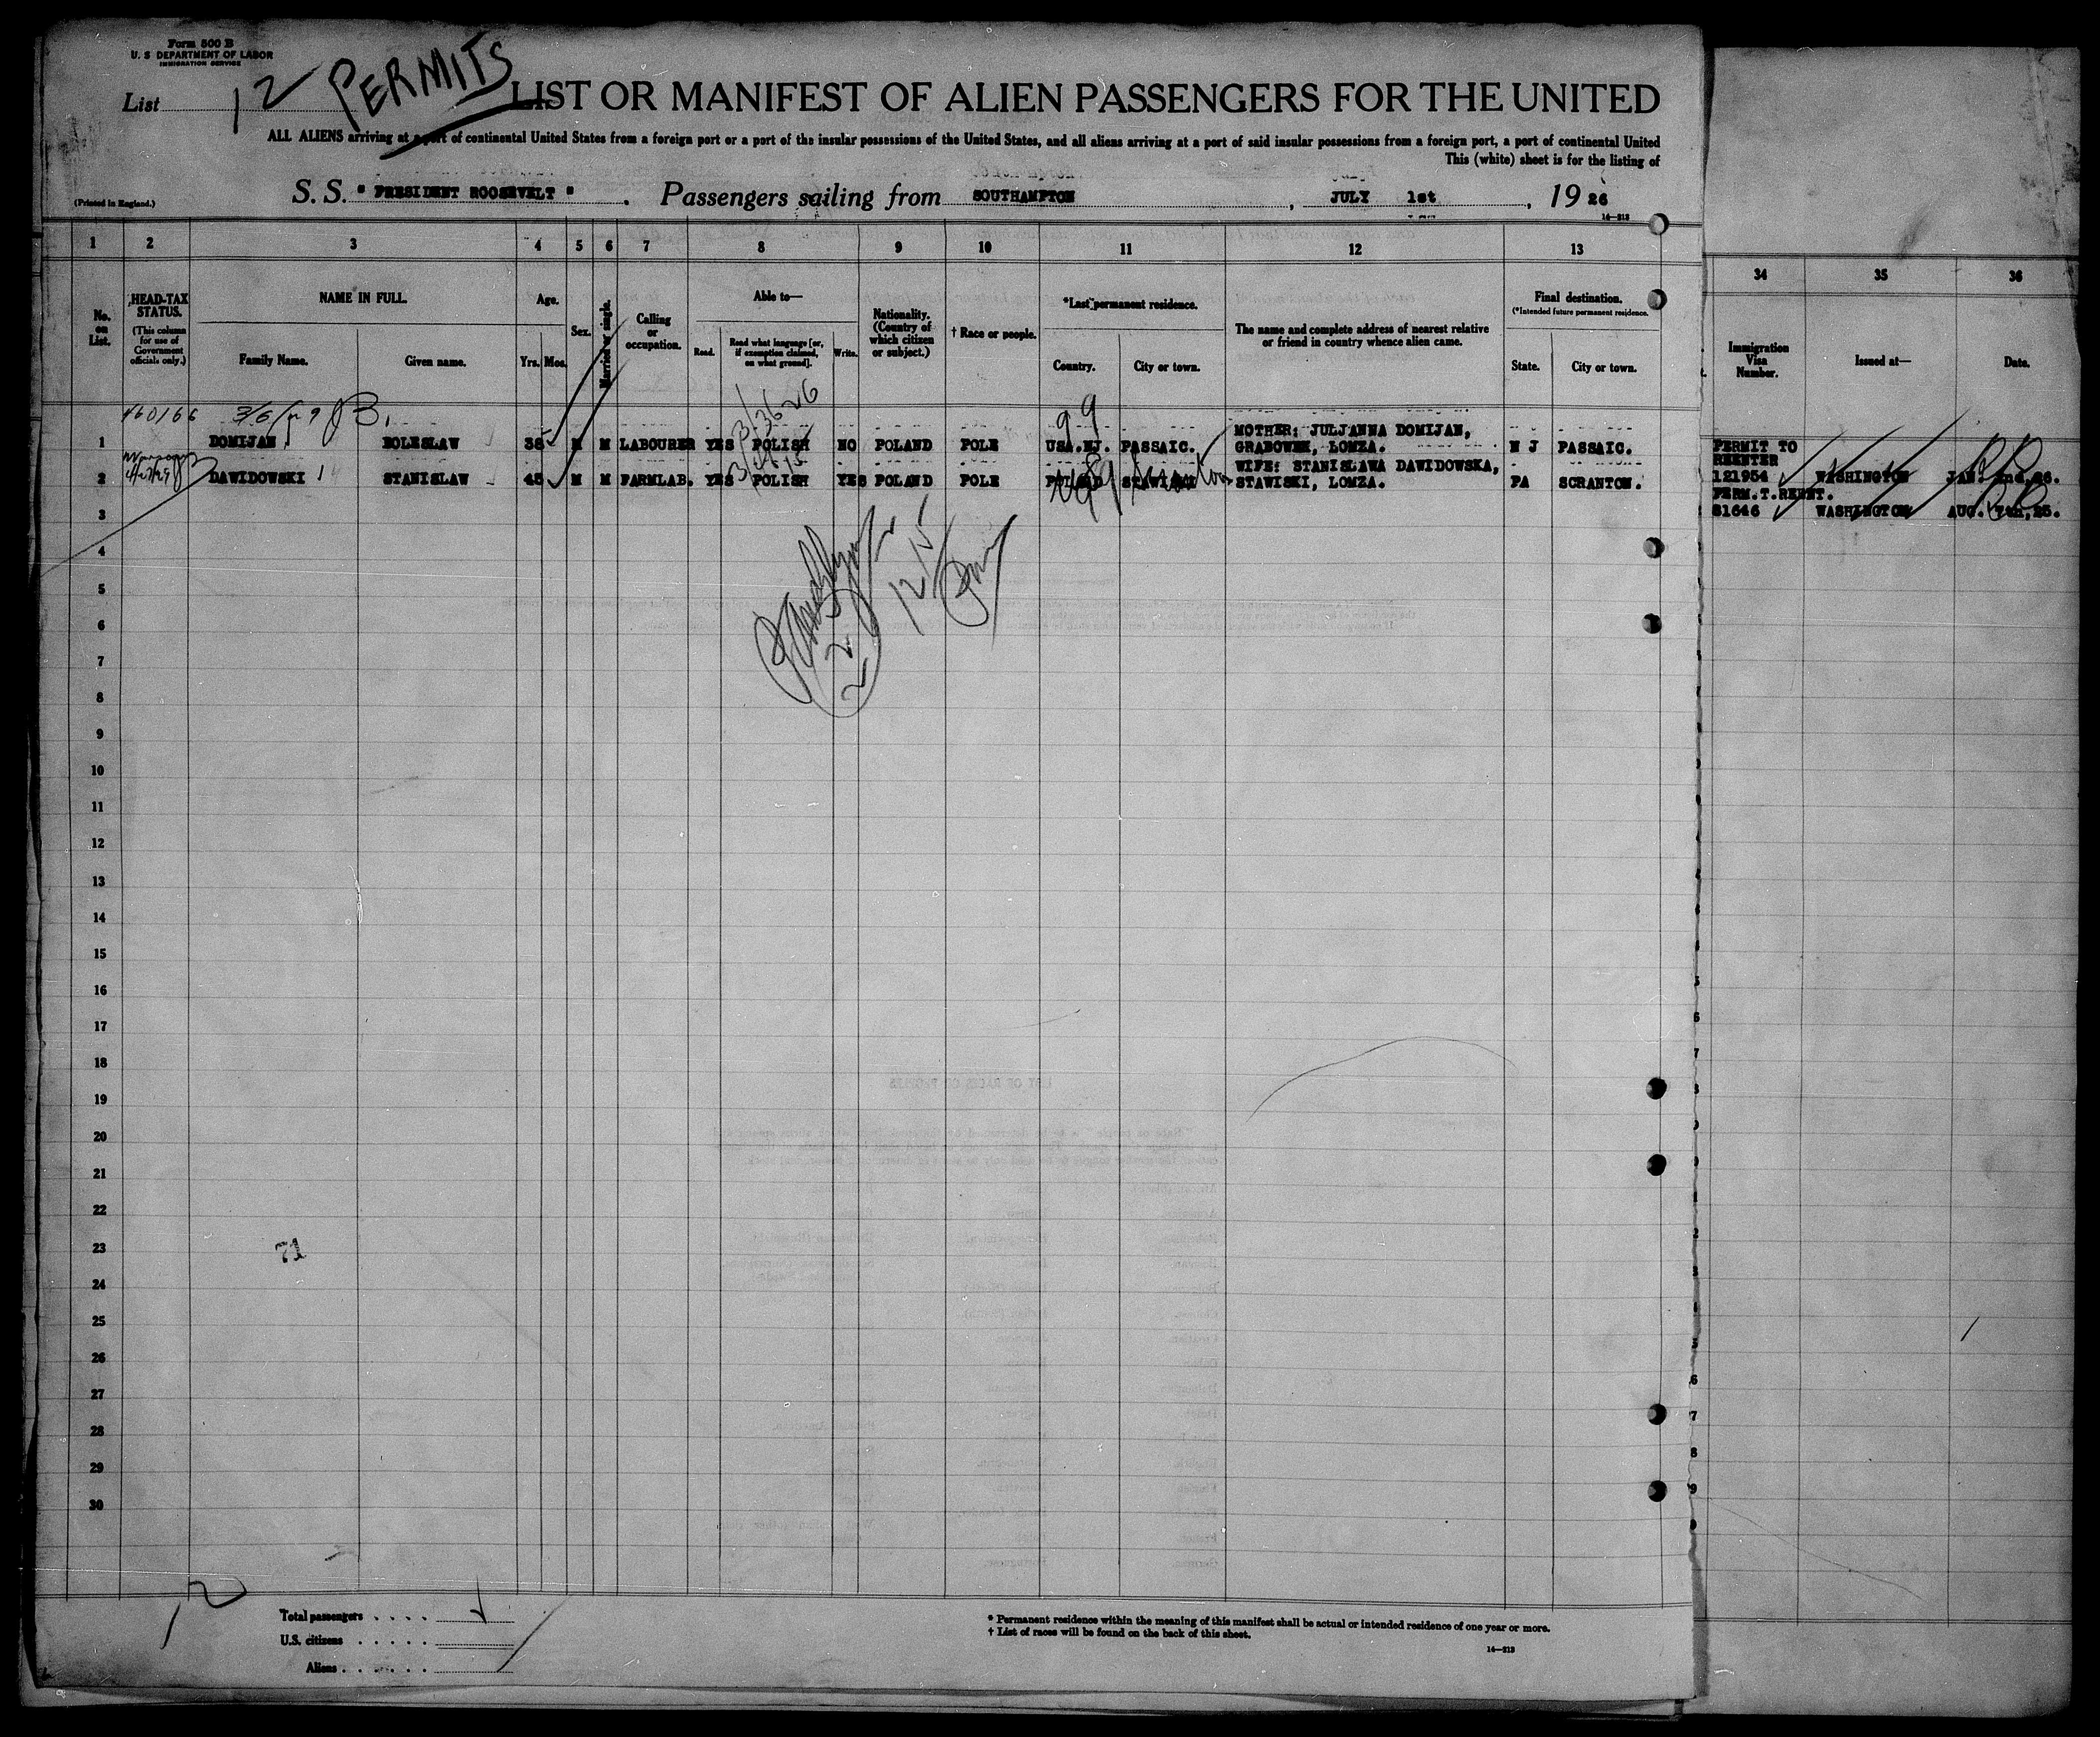 Form 500 B
U. S DEPARTMENT OF LABOR
IMMIGRATION SERVICE
List 12 PERMITS
LIST OR MANIFEST OF ALIEN PASSENGERS FOR THE UNITED
ALL ALIENS arriving at a port of continental United States from a foreign port or a port of the insular possessions of the United States, and all aliens arriving at a port of said insular possessions from a foreign port, a port of continental United
This (white) sheet is for the listing of
(Printed in England.)
S. S. " PRESIDENT ROOSEVELT " . Passengers sailing from SOUTHAMPTON , JULY 1st , 19 26
14—213
1 2 3 4 5 6 7 8 9 10 11 12 13 34 35 36
No. on List.
HEAD-TAX STATUS.
(This column for use of Government officials only.)
NAME IN FULL.
Family Name. Given name.
Age.
Yrs. Mos.
Sex.
Married or single.
Calling or occupation.
Able to—
Read. Read what language [or, if exemption claimed, on what ground]. Write.
Nationality. (Country of which citizen or subject.)
† Race or people.
*Last permanent residence.
Country. City or town.
The name and complete address of nearest relative or friend in country whence alien came.
Final destination.
(*Intended future permanent residence.
State. City or town.
Immigration Visa Number.
Issued at—
Date.
460166
99
MOTHER: JULJANNA DOMIJAN,
1 DOMIJAN BOLESLAW 38 M M LABOURER YES POLISH NO POLAND POLE USA.NJ. PASSAIC. GRABOWEK, LOMZA. N J PASSAIC.
PERMIT TO REENTER
WIFE: STANISLAWA DAWIDOWSKA,
2 DAWIDOWSKI STANISLAW 45 M M FARMLAB. YES POLISH YES POLAND POLE POLAND STAWISKI Scranton STAWISKI, LOMZA. PA SCRANTON.
121954 WASHINGTON JAN. 2nd,26.
PERM.T.REENT.
81646 WASHINGTON AUG. 7th,25.
3
4
5
6
7
8
9
10
11
12
13
14
15
16
17
18
19
20
21
22
23
24
25
26
27
28
29
30
71
12
Total passengers . . . .
U.S. citizens . . . . .
Aliens . . . . . .
* Permanent residence within the meaning of this manifest shall be actual or intended residence of one year or more.
† List of races will be found on the back of this sheet.
14—213